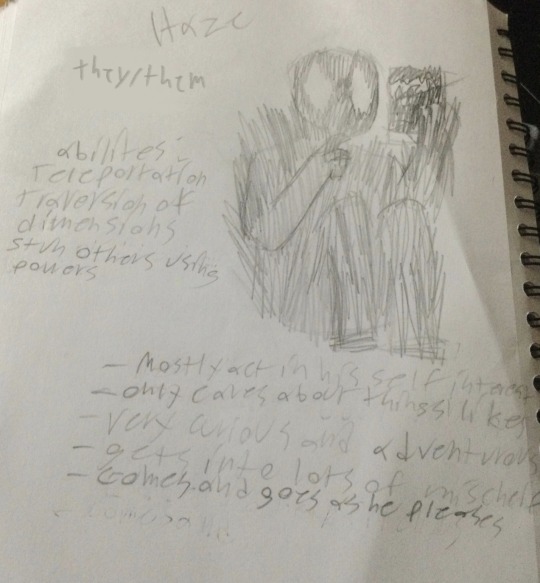 Haze
they/them
abilites:
Teleportation
Traversion of
dimensions
stun others using
powers
- Mostly act in his self interest
- only cares about things likes
- very curious and adventurous
- gets into lots of mischeif
- Comes and goes as he pleases